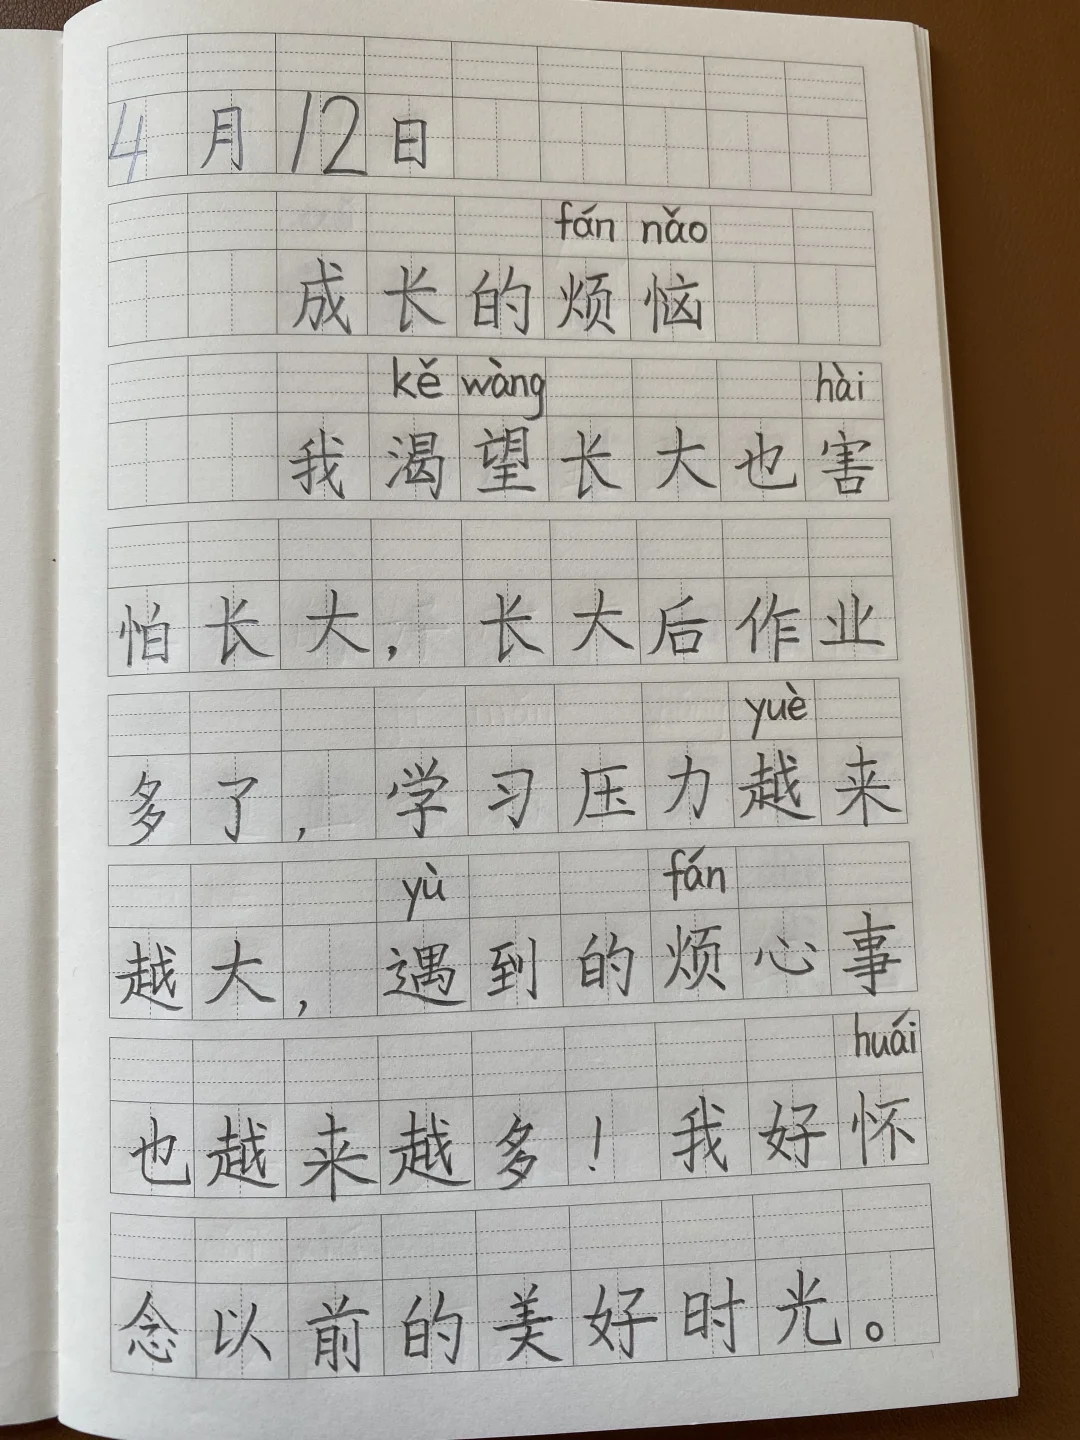 4月12日
fán nǎo
成长的烦恼
kě wàng hài
我渴望长大也害
怕长大，长大后作业
yuè
多了，学习压力越来
yù fán
越大，遇到的烦心事
huái
也越来越多！我好怀
念以前的美好时光。